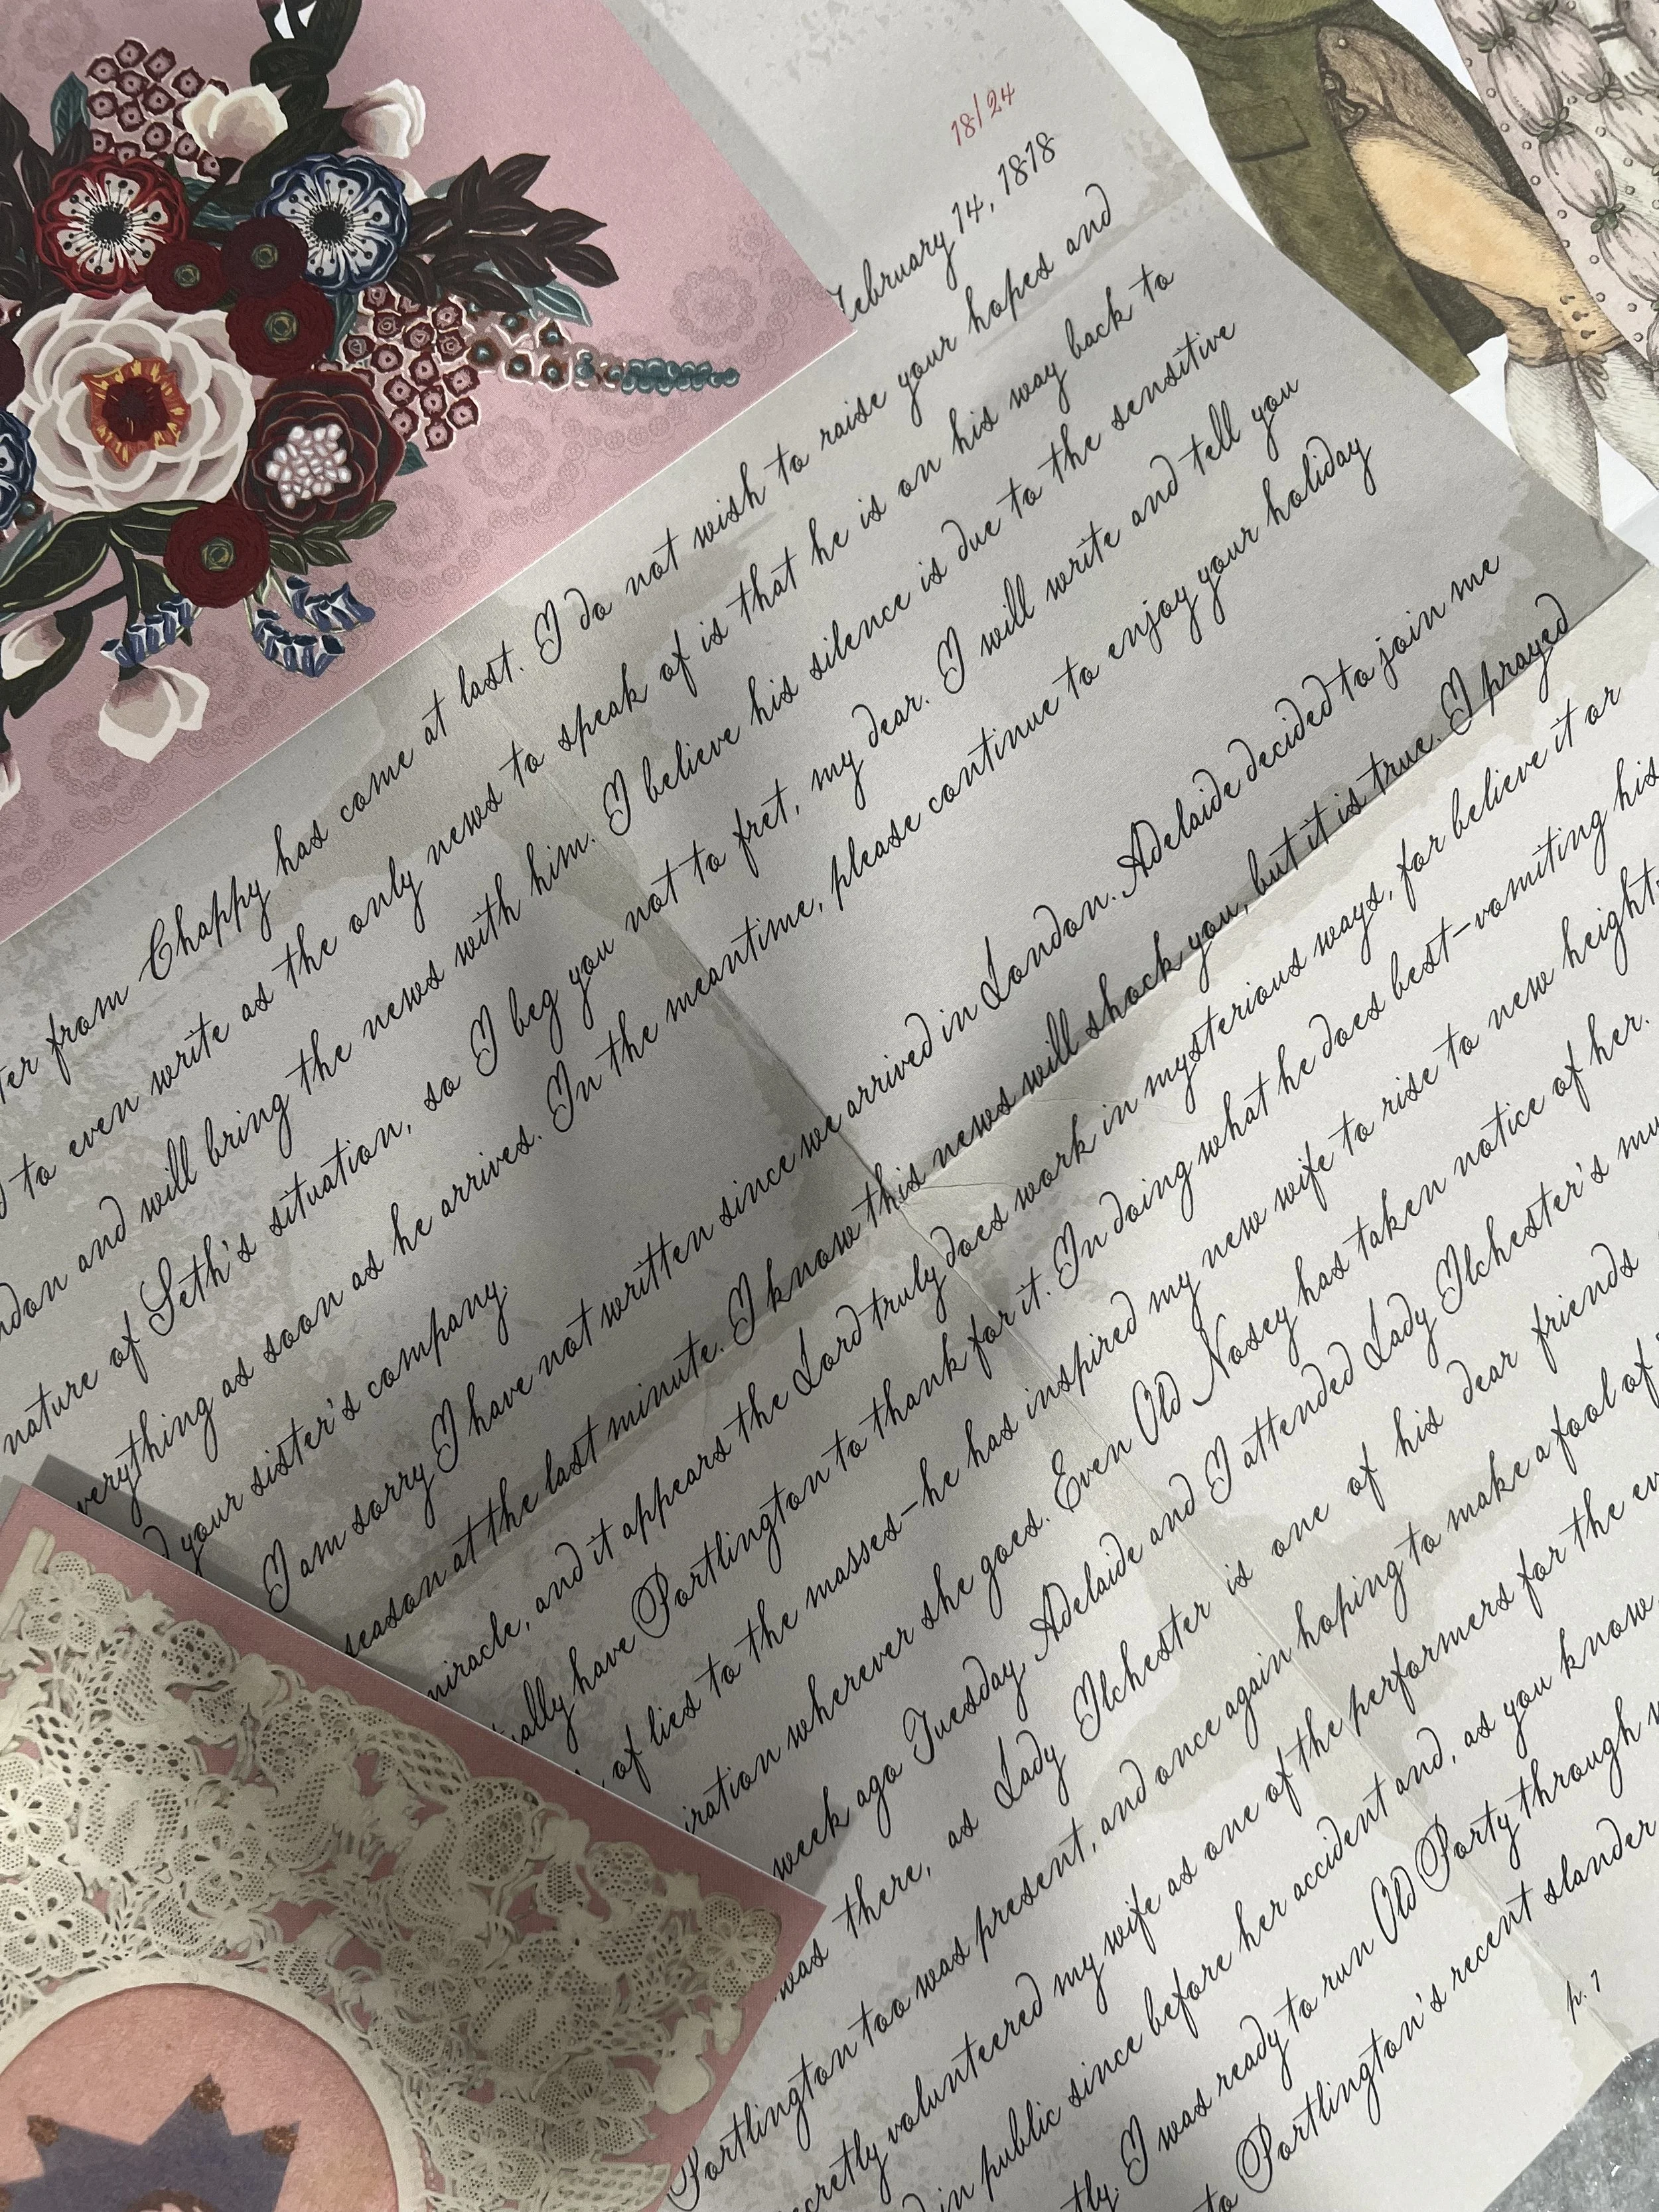 18/24
February 14, 1818
from Chappy has come at last. I do not wish to raise your hopes and
to even write as the only news to speak of is that he is on his way back to
and will bring the news with him. I believe his silence is due to the sensitive
nature of Seth's situation, so I beg you not to fret, my dear. I will write and tell you
everything as soon as he arrives. In the meantime, please continue to enjoy your holiday
your sister's company.
I am sorry I have not written since we arrived in London. Adelaide decided to join me
season at the last minute. I know this news will shock you, but it is true. I prayed
miracle, and it appears the Lord truly does work in mysterious ways, for believe it or
have Portlington to thank for it. In doing what he does best-vomiting his
of lies to the masses-he has inspired my new wife to rise to new heights
wherever she goes. Even Old Nosey has taken notice of her.
week ago Tuesday Adelaide and I attended Lady Ilchester's
was there, as Lady Ilchester is one of his dear friends
Portlington too was present, and once again hoping to make a fool of
volunteered my wife as one of the performers for the
in public since before her accident and, as you know
I was ready to run Old Porty through
to Portlington's recent slander
p. 1